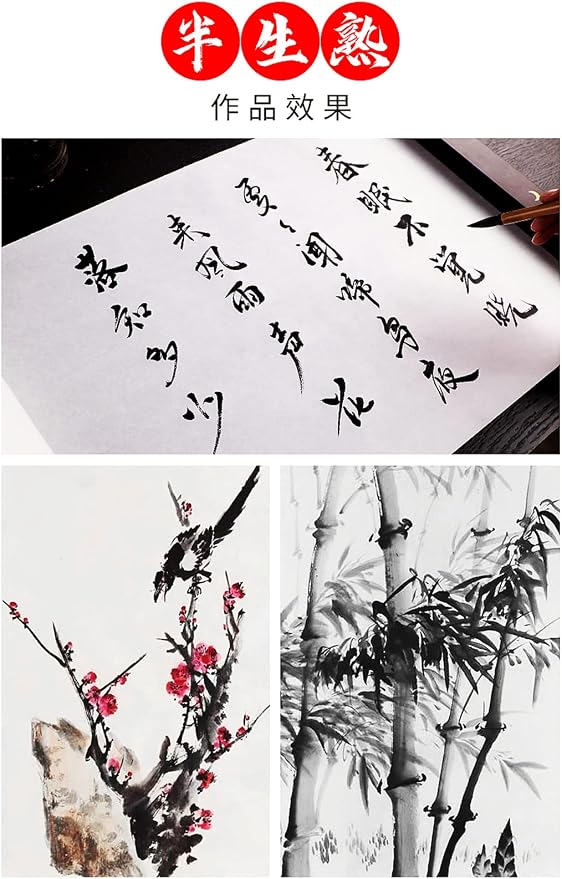 半生熟
作品效果
春眠不觉晓
处々闻啼鸟夜
来风雨声花
落知多少